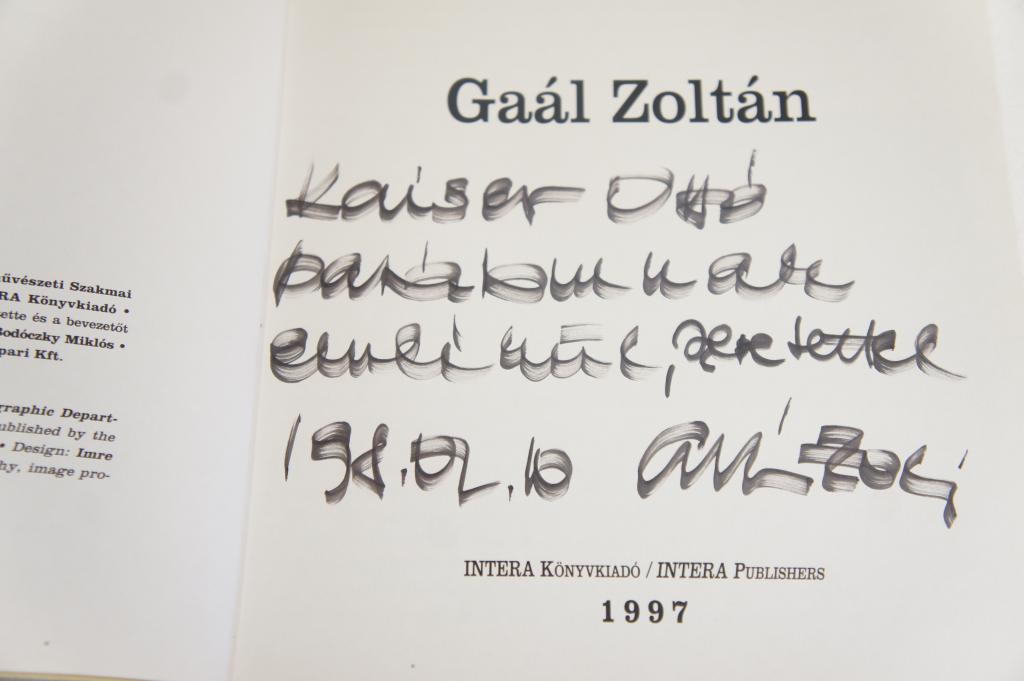 űvészeti Szakmai
RA Könyvkiadó •
ette és a bevezetőt
Bodóczky Miklós •
pari Kft.
graphic Depart-
ublished by the
• Design: Imre
hy, image pro-
Gaál Zoltán
Kaiser Ottó
barátomnak
emlékül, szeretettel
Gaál Zoli
INTERA Könyvkiadó / INTERA Publishers
1997